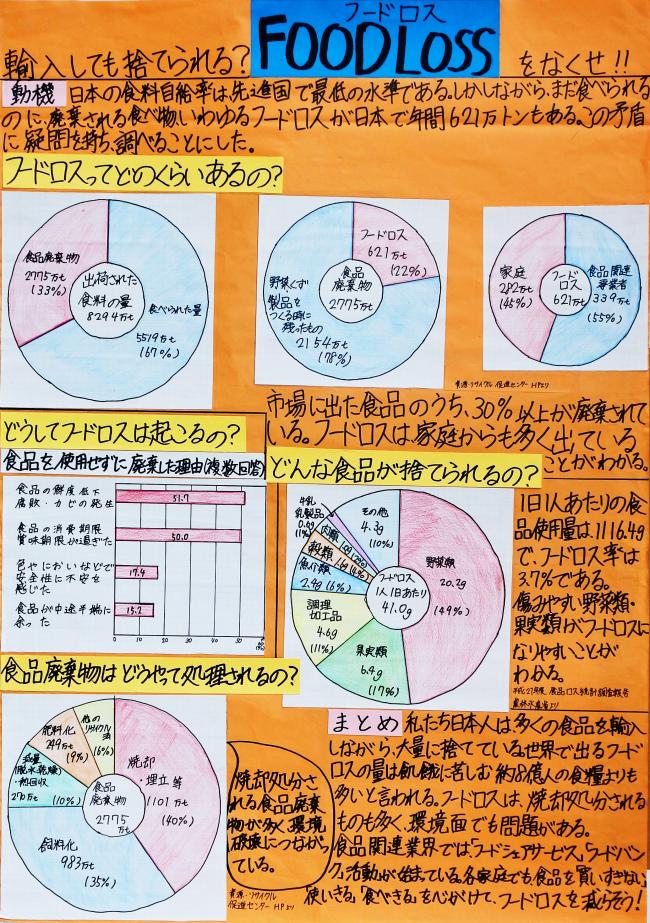 フードロス
輸入しても捨てられる? FOOD LOSS をなくせ!!
動機 日本の食料自給率は、先進国で最低の水準である。しかしながら、まだ食べられる
のに、廃棄される食べ物、いわゆるフードロスが日本で年間621万トンもある。この矛盾
に疑問を持ち、調べることにした。
フードロスってどのくらいあるの?
食品廃棄物
2775万t
(33%)
出荷された
食料の量
8294万t
食べられた量
5519万t
(67%)
フードロス
621万t
(22%)
食品
廃棄物
2775万t
野菜くず
製品を
つくる時に
残ったもの
2154万t
(78%)
家庭
282万t
(45%)
フード
ロス
621万t
食品関連
事業者
339万t
(55%)
資源・リサイクル促進センター HPより
市場に出た食品のうち、30%以上が廃棄されて
いる。フードロスは、家庭からも多く出ている
ことがわかる。
どうしてフードロスは起こるの?
食品を使用せずに廃棄した理由(複数回答)
食品の鮮度低下
腐敗・カビの発生
51.7
食品の消費期限
賞味期限が過ぎた
50.0
色やにおいなどで
安全性に不安を
感じた
17.4
食品が中途半端に
余った
15.2
0 10 20 30 40 50
(%)
どんな食品が捨てられるの?
牛乳
乳製品
0.6g
(1%)
肉類
穀類
1.6g(4%)
魚介類
2.4g(6%)
調理
加工品
4.6g
(11%)
果実類
6.4g
(17%)
その他
4.3g
(10%)
野菜類
20.2g
(49%)
フードロス
1人1日あたり
41.0g
1日1人あたりの食
品使用量は、1116.4g
で、フードロス率は
3.7%である。
傷みやすい野菜類・
果実類がフードロスに
なりやすいことが
わかる。
平成27年度 食品ロス統計調査報告
農林水産省より
食品廃棄物はどうやって処理されるの?
肥料化
249万t
(9%)
他の
リサイクル法
(6%)
減量
(脱水・乾燥)
・熱回収
270万t
(10%)
飼料化
983万t
(35%)
食品
廃棄物
2775
万t
焼却
・埋立等
1101万t
(40%)
焼却処分さ
れる食品廃棄
物が多く、環境
破壊につながっ
ている。
資源・リサイクル
促進センター HPより
まとめ 私たち日本人は、多くの食品を輸入
しながら、大量に捨てている。世界で出るフード
ロスの量は飢餓に苦しむ約8億人の食糧よりも
多いと言われる。フードロスは、焼却処分される
ものも多く、環境面でも問題がある。
食品関連業界では、「フードシェアサービス」、「フードバン
ク」活動が始まっている。各家庭でも、食品を「買いすぎない」
「使いきる」「食べきる」を心がけて、フードロスを減らそう!